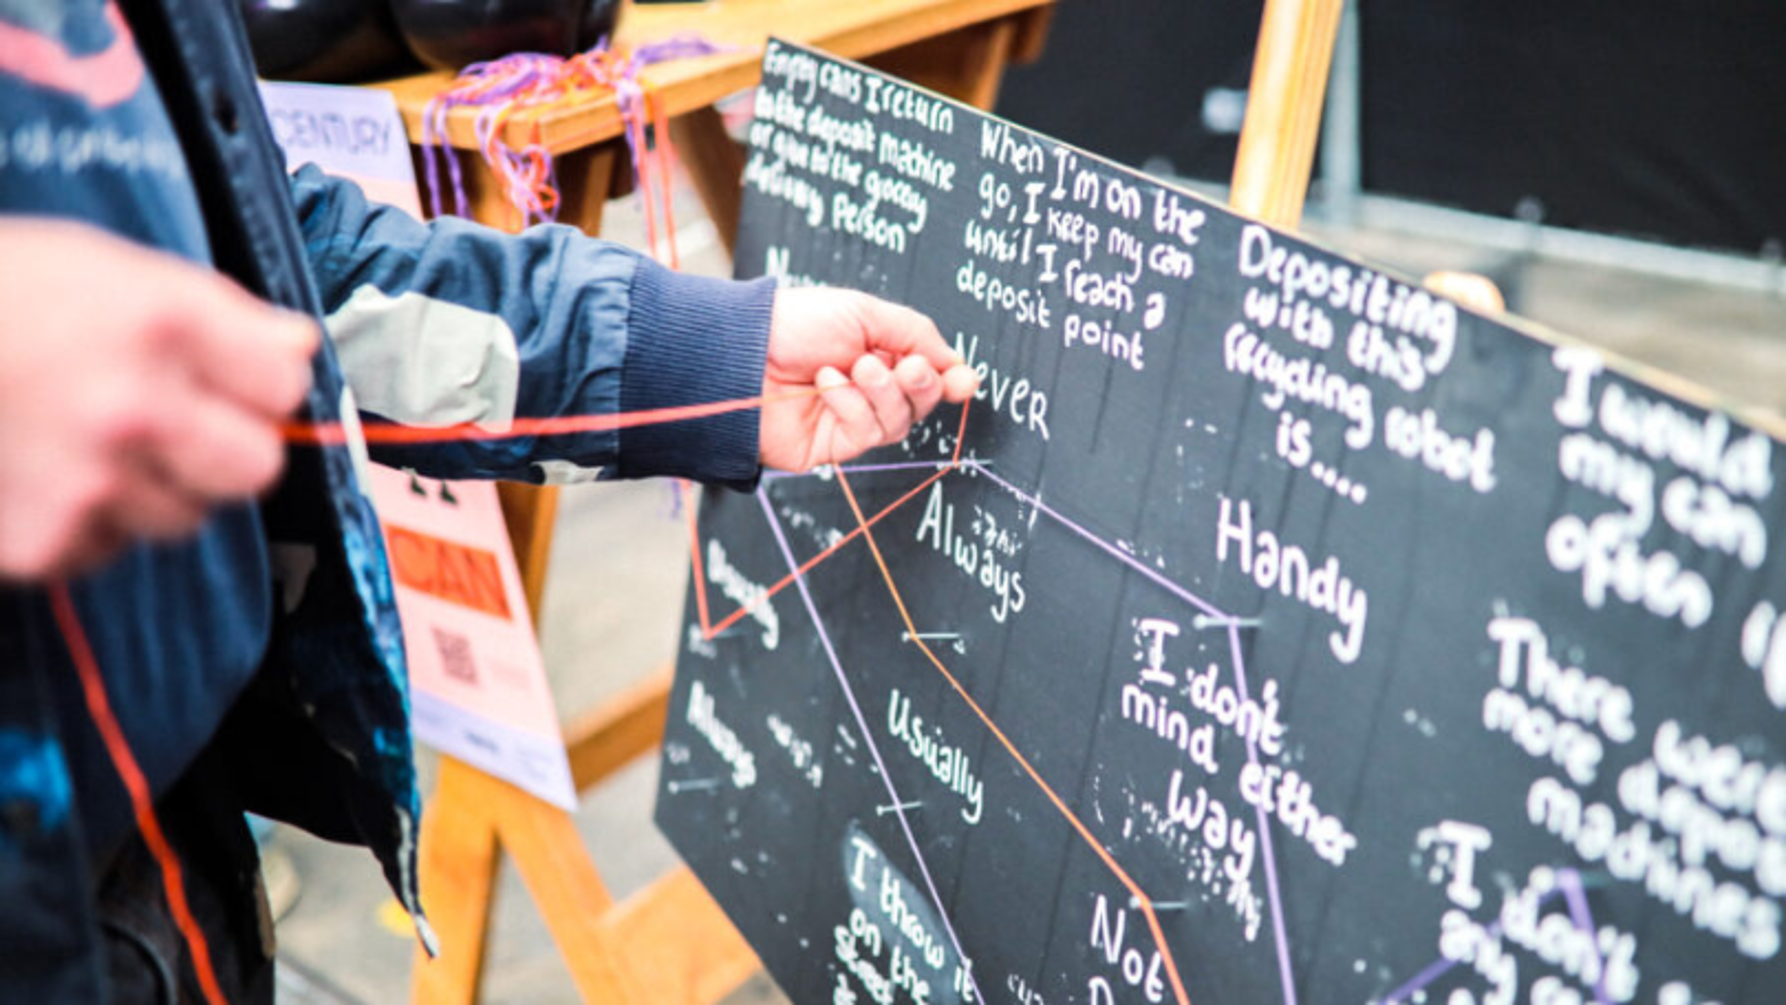 CENTURY
CAN
Empty cans I return
to the deposit machine
or give to the grocery
delivery person
Usually
Always
When I'm on the
go, I keep my can
until I reach a
deposit point
Never
Always
Usually
I throw it
on the
street
Depositing
with this
recycling robot
is....
Handy
I don't
mind either
way
Not
I would
my can
often
There were
more
machines
I don't
any